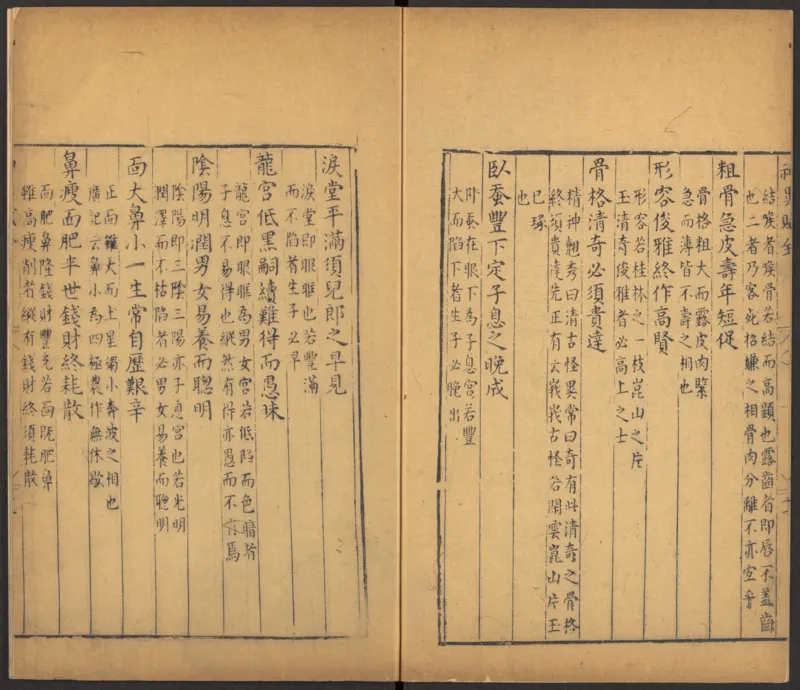 結喉者喉骨若結而高顯也露齒者即唇不蓋齒
也二者乃客死招嫌之相骨肉分離不亦宜乎
粗骨急皮壽年短促
骨格粗大而露皮肉緊
急而薄皆不壽之相也
形容俊雅終作高賢
形容若桂林之一枝崑山之片
玉清奇俊雅者必高上之士
骨格清奇必須貴達
精神翹秀曰清古怪異常曰奇有此清奇之骨格
終須貴達先正有云峩峩古怪若閑雲崑山片玉
已琢
也
臥蚕豐下定子息之晚成
卧蚕在眼下為子息宮若豐
大而陷下者生子必晚出
淚堂平滿須兒郎之早見
淚堂即眼眶也若豐滿
而不陷者生子必早
龍宮低黑嗣續難得而愚昧
龍宮即眼眶為男女宮若低陷而色暗者
子息不易得也縱然有得亦愚而不肖焉
陰陽明潤男女易養而聰明
陰陽即三陰三陽亦子息宮也若光明
潤澤而不枯陷者必男女易養而聰明
面大鼻小一生常自歷艱辛
正面雖大而土星獨小奔波之相也
廣記云鼻小為四極農作無休歇
鼻瘦面肥半世錢財終耗散
面肥鼻隆錢財豐充若面既肥鼻
雖高瘦削者縱有錢財終須耗散